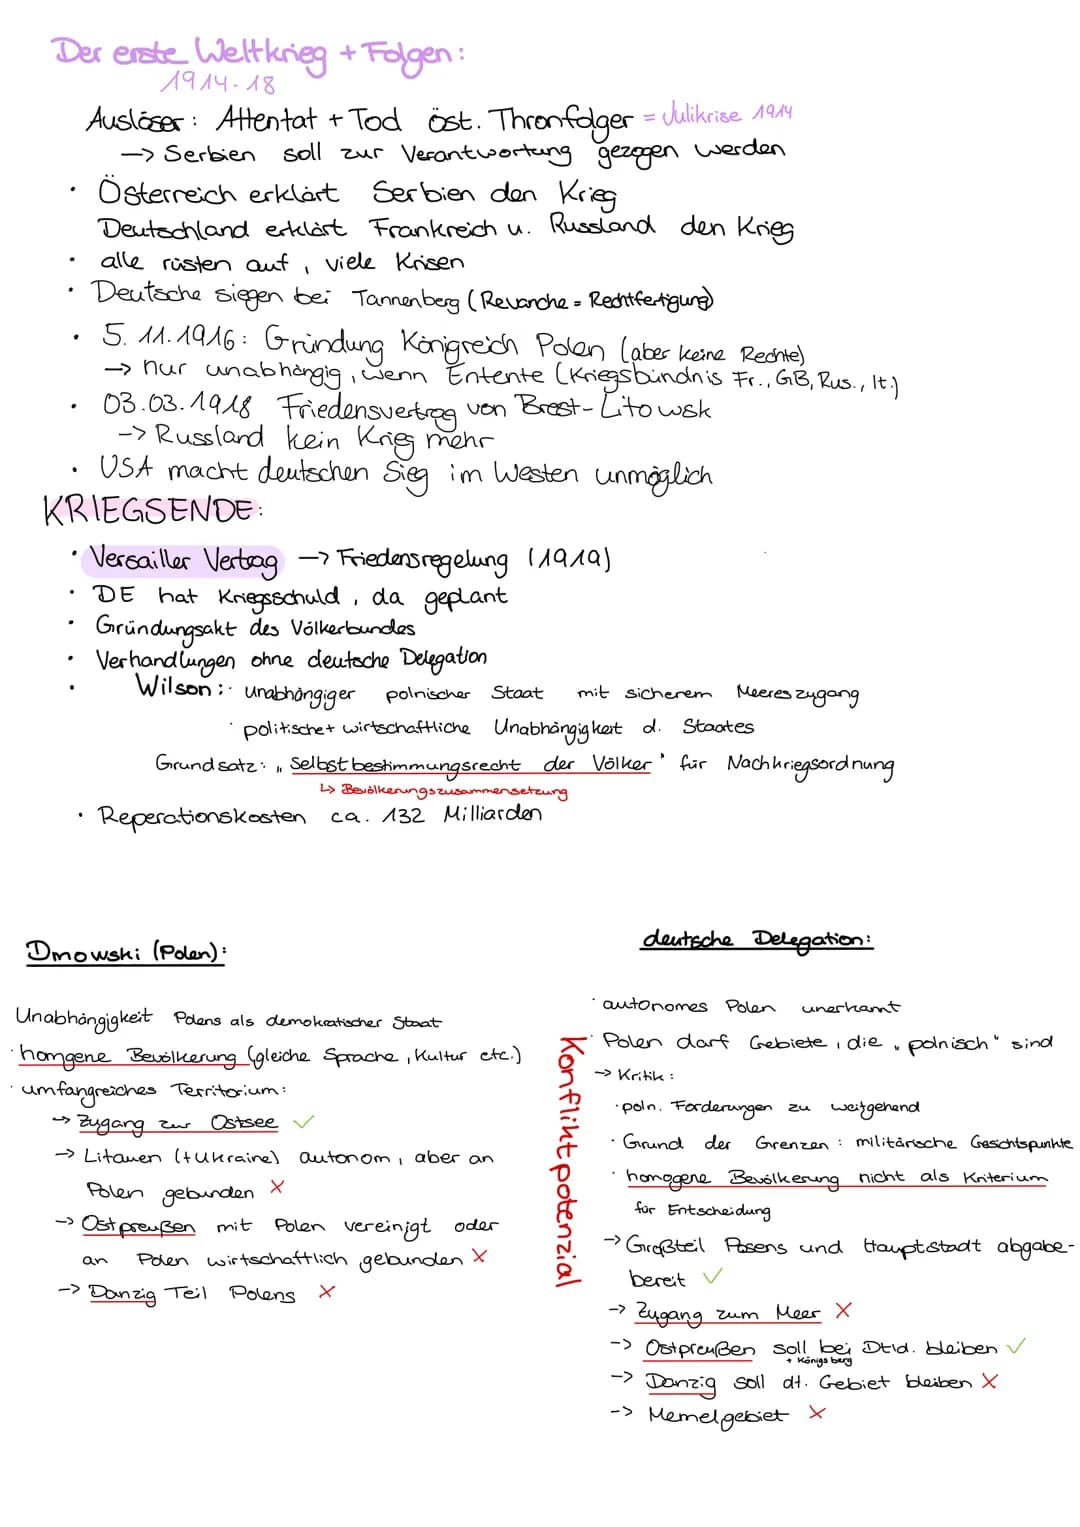 Der erste Weltkrieg + Folgen:
1914-18
Auslöser: Attentat + Tod öst. Thronfolger = Julikrise 1914
-> Serbien soll zur Verantwortung gezogen werden
• Österreich erklärt Serbien den Krieg
Deutschland erklärt Frankreich u. Russland den Krieg
• alle rüsten auf, viele Krisen
• Deutsche siegen bei Tannenberg (Revanche = Rechtfertigung)
• 5.11.1916: Gründung Königreich Polen (aber keine Rechte)
-> nur unabhängig, wenn Entente (Kriegsbündnis Fr., GB, Rus., It.)
• 03.03.1918 Friedensvertrag von Brest-Litowsk
-> Russland kein Krieg mehr
• USA macht deutschen Sieg im Westen unmöglich
KRIEGSENDE:
• Versailler Vertrag -> Friedensregelung (1919)
• DE hat Kriegsschuld, da geplant
• Gründungsakt des Völkerbundes
• Verhandlungen ohne deutsche Delegation
• Wilson: · unabhängiger polnischer Staat mit sicherem Meereszugang
· politische + wirtschaftliche Unabhängigkeit d. Staates
Grundsatz: „Selbstbestimmungsrecht der Völker" für Nachkriegsordnung
↳ Bevölkerungszusammensetzung
• Reperationskosten ca. 132 Milliarden
Dmowski (Polen):
Unabhängigkeit Polens als demokratischer Staat
· homgene Bevölkerung (gleiche Sprache, Kultur etc.)
· umfangreiches Territorium:
-> Zugang zur Ostsee ✓
-> Litauen (+Ukraine) autonom, aber an
Polen gebunden X
-> Ostpreußen mit Polen vereinigt oder
an Polen wirtschaftlich gebunden X
-> Danzig Teil Polens X
Konfliktpotenzial
deutsche Delegation:
· autonomes Polen anerkannt
· Polen darf Gebiete, die „polnisch" sind
-> Kritik:
· poln. Forderungen zu weitgehend
· Grund der Grenzen: militärische Gesichtspunkte
· homogene Bevölkerung nicht als Kriterium
für Entscheidung
-> Großteil Posens und Hauptstadt abgabe-
bereit ✓
-> Zugang zum Meer X
-> Ostpreußen soll bei Dtld. bleiben ✓
+ Königsberg
-> Danzig soll dt. Gebiet bleiben X
-> Memelgebiet X